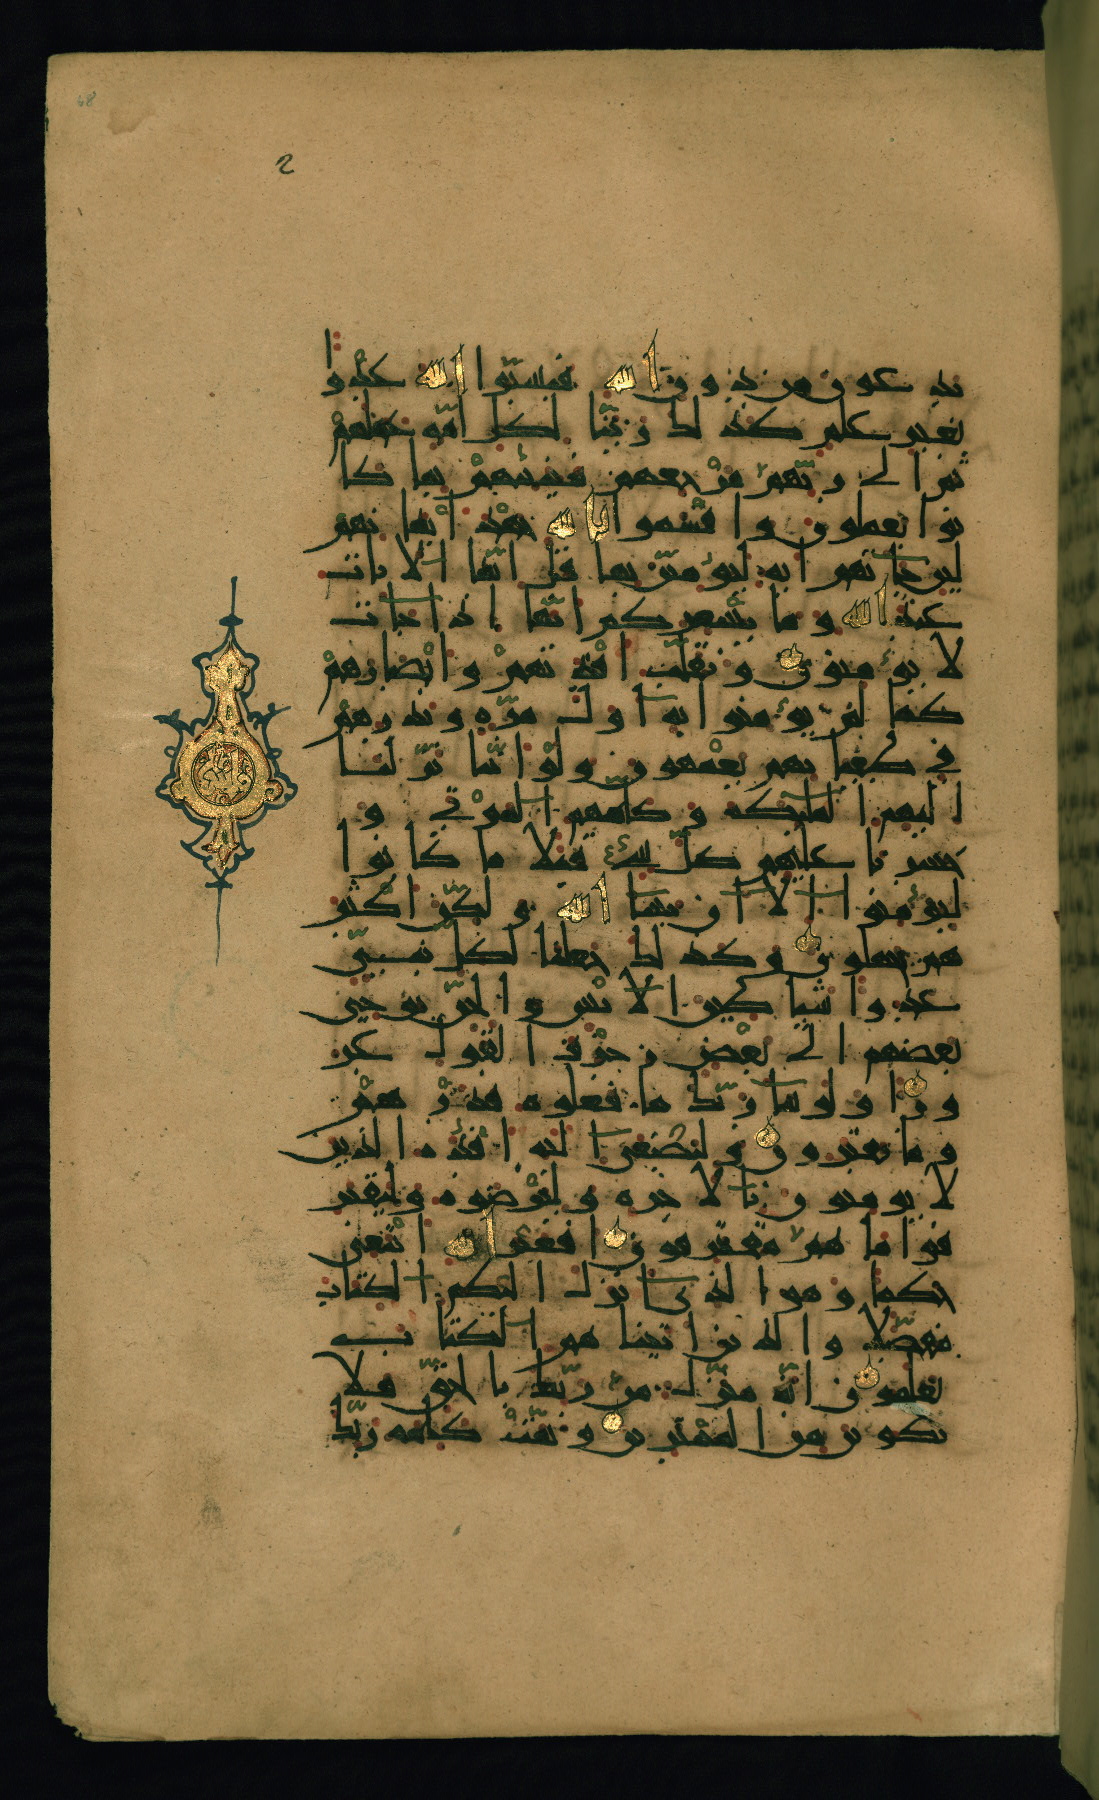 يدعون من دون الله فيسبوا الله عدوا
بغير علم كذلك زينا لكل امة عملهم
ثم الى ربهم مرجعهم فينبئهم بما كا
نوا يعملون واقسموا بالله جهد ايمانهم
لئن جاءتهم اية ليؤمنن بها قل انما الايات
عند الله وما يشعركم انها اذا جاءت
لا يؤمنون ونقلب افئدتهم وابصارهم
كما لم يؤمنوا به اول مرة ونذرهم
في طغيانهم يعمهون ولو اننا نزلنا
اليهم الملئكة وكلمهم الموتى و
حشرنا عليهم كل شيء قبلا ما كانوا
ليؤمنوا الا ان يشاء الله ولكن اكثر
هم يجهلون وكذلك جعلنا لكل نبي
عدوا شياطين الانس والجن يوحي
بعضهم الى بعض زخرف القول غر
ورا ولو شاء ربك ما فعلوه فذرهم
وما يفترون ولتصغى اليه افئدة الذين
لا يؤمنون بالاخرة وليرضوه وليقتر
فوا ما هم مقترفون افغير الله ابتغي
حكما وهو الذي انزل اليكم الكتاب
مفصلا والذين اتيناهم الكتاب
يعلمون انه منزل من ربك بالحق فلا
تكونن من الممترين وتمت كلمة ربك
68
2